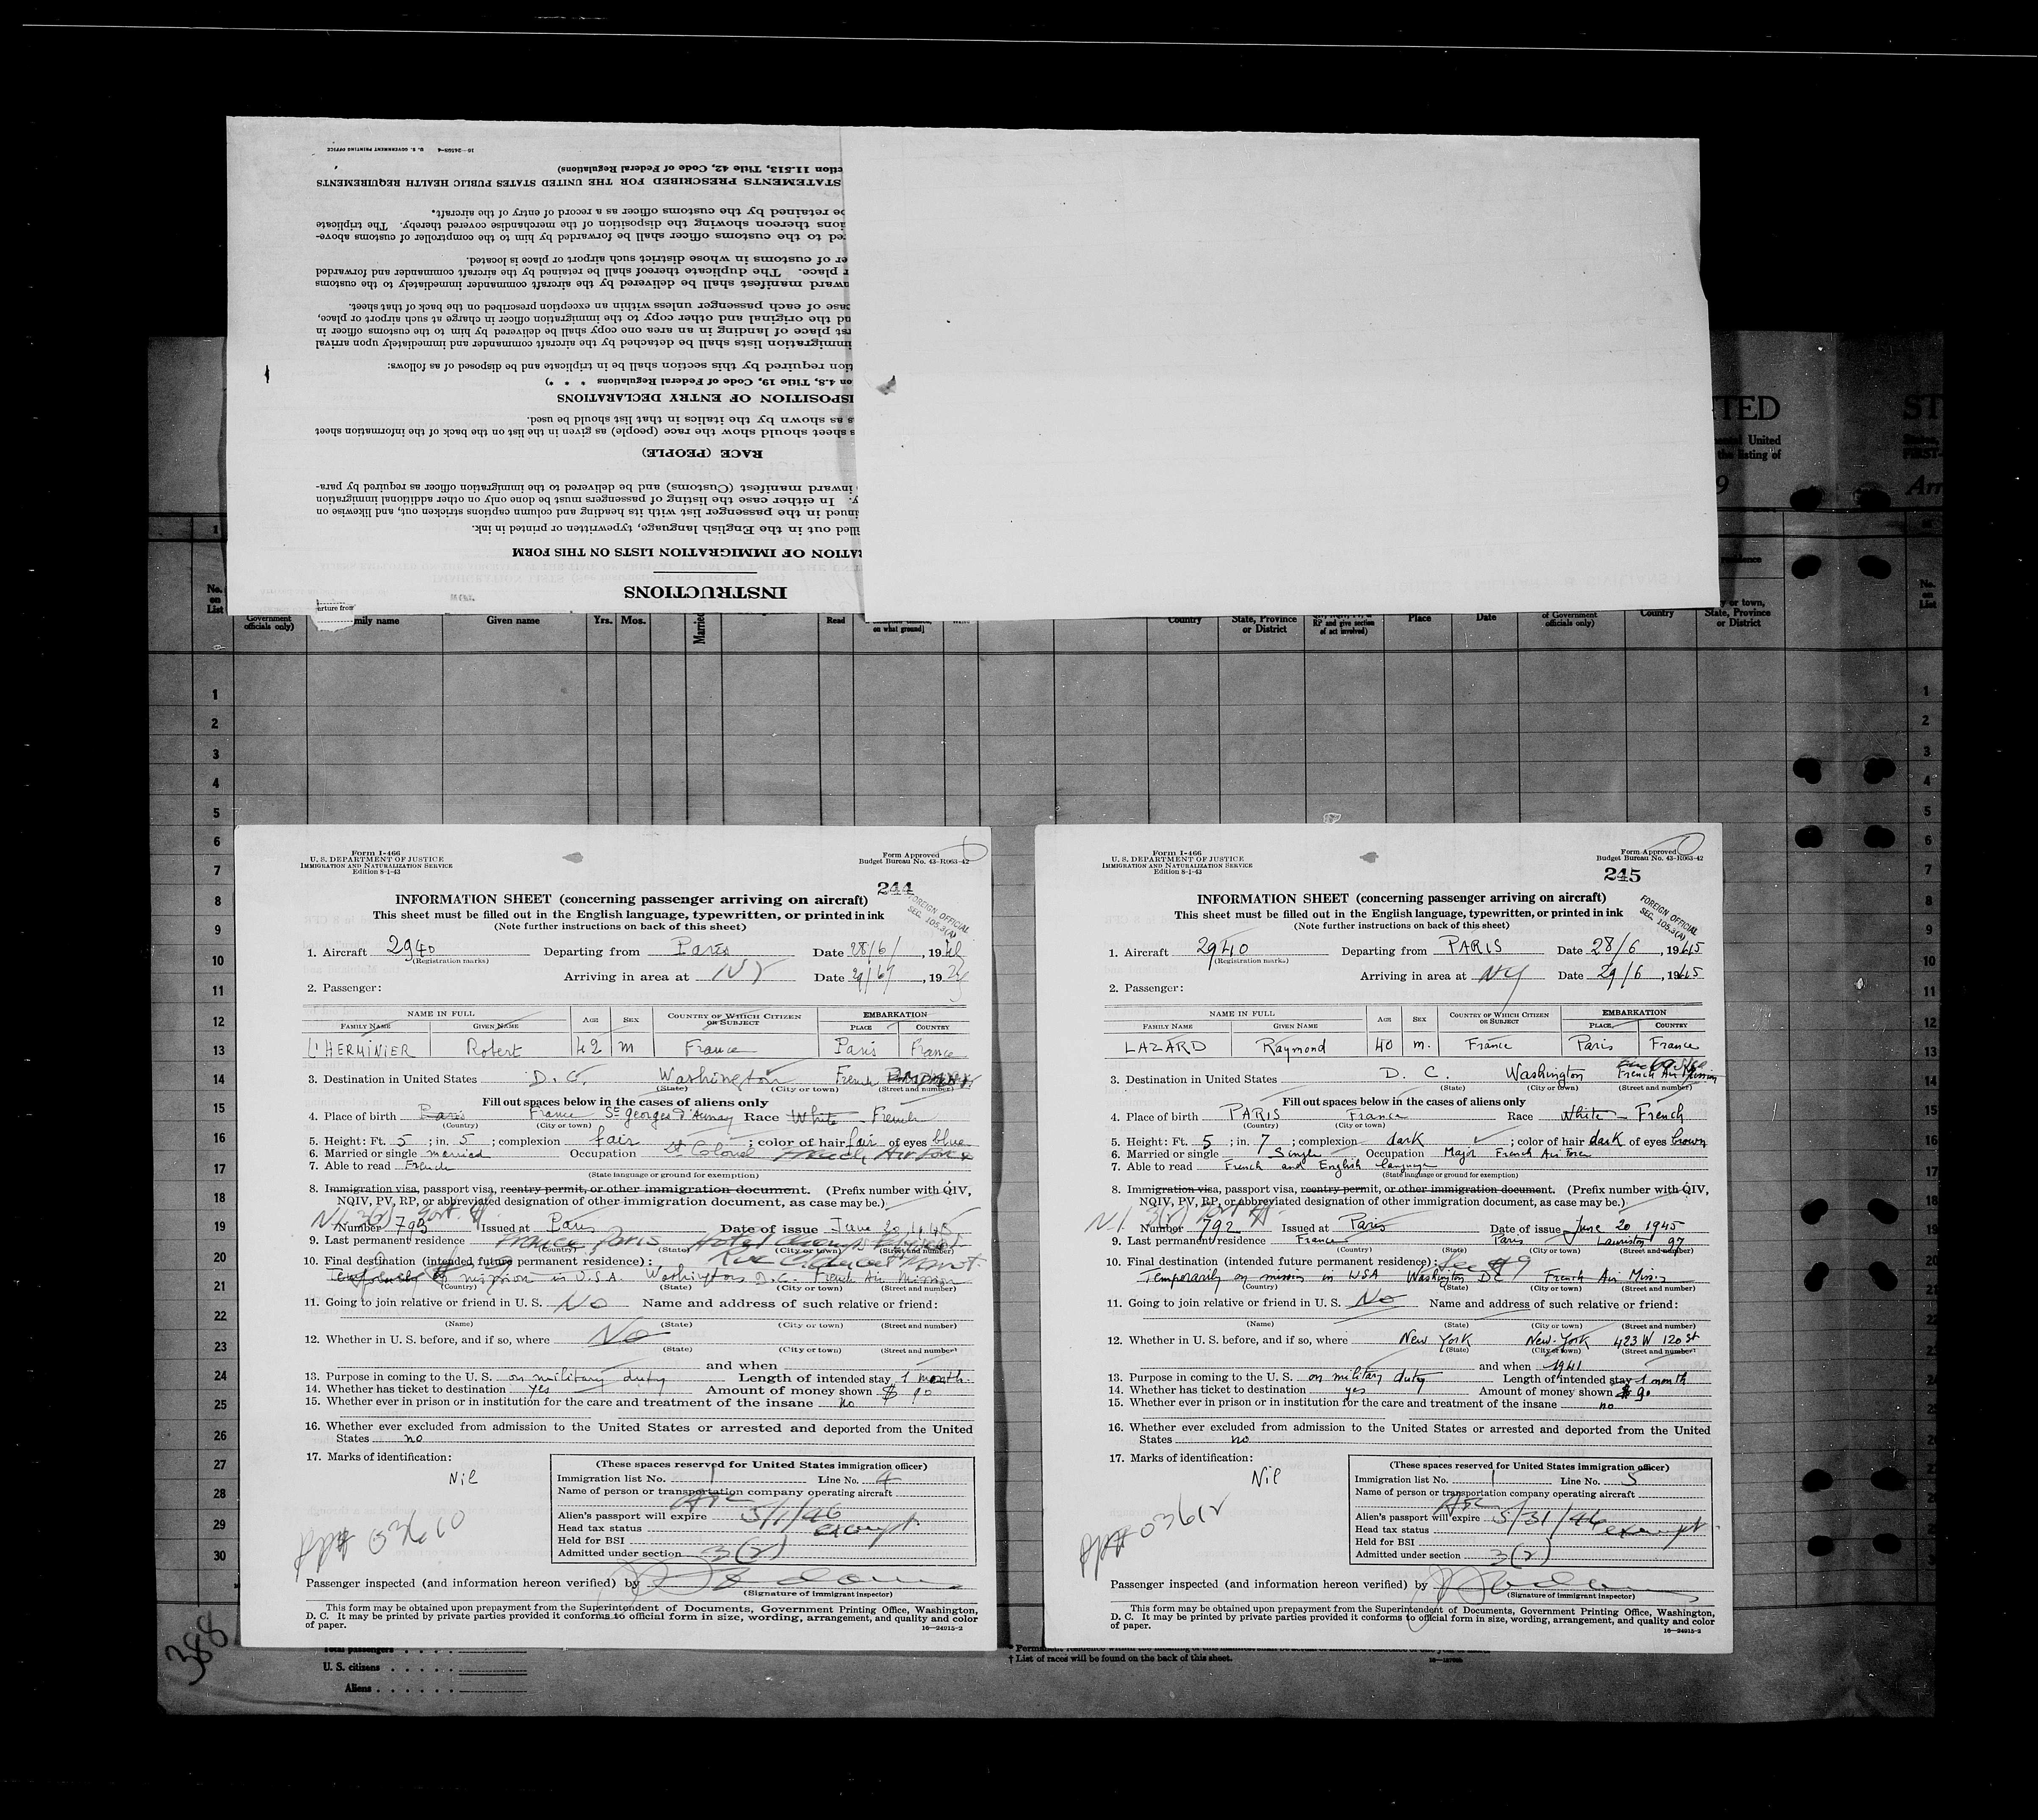 INSTRUCTIONS
RATION OF IMMIGRATION LISTS ON THIS FORM
illed out in the English language, typewritten or printed in ink.
inued in the passenger list with its heading and column captions stricken out, and likewise on
y. In either case the listing of passengers must be done only on other additional immigration
inward manifest (Customs) and be delivered to the immigration officer as required by para-
RACE (PEOPLE)
s sheet should show the race (people) as given in the list on the back of the information sheet
s as shown by the italics in that list should be used.
ISPOSITION OF ENTRY DECLARATIONS
on 4.8, Title 19, Code of Federal Regulations * * *)
tion required by this section shall be in triplicate and be disposed of as follows:
immigration lists shall be detached by the aircraft commander and immediately upon arrival
st place of landing in an area one copy shall be delivered by him to the customs officer in
nd the original and other copy to the immigration officer in charge at such airport or place,
case of each passenger unless within an exception prescribed on the back of that sheet.
ward manifest shall be delivered by the aircraft commander immediately to the customs
r place. The duplicate thereof shall be retained by the aircraft commander and forwarded
er of customs in whose district such airport or place is located.
ed to the customs officer shall be forwarded by him to the comptroller of customs above-
ions thereon showing the disposition of the merchandise covered thereby. The triplicate
be retained by the customs officer as a record of entry of the aircraft.
STATEMENTS PRESCRIBED FOR THE UNITED STATES PUBLIC HEALTH REQUIREMENTS
ction 11.513, Title 42, Code of Federal Regulations)
16—24508-4 U. S. GOVERNMENT PRINTING OFFICE
TED
ental United
the listing of
9
ST
FIRST-
Am
No. on List
Government officials only)
mily name
Given name
Yrs. Mos.
Married
Read
on what ground]
Country
State, Province or District
RP and give section of act involved)
Place
Date
of Government officials only)
Country
y or town, State, Province or District
No. on List
1
2
3
4
5
6
7
8
9
10
11
12
13
14
15
16
17
18
19
20
21
22
23
24
25
26
27
28
29
30
Form I-466
U. S. DEPARTMENT OF JUSTICE
IMMIGRATION AND NATURALIZATION SERVICE
Edition 8-1-43
Form Approved
Budget Bureau No. 43-R063-42
244
FOREIGN OFFICIAL
SEC. 105.3(A)
INFORMATION SHEET (concerning passenger arriving on aircraft)
This sheet must be filled out in the English language, typewritten, or printed in ink
(Note further instructions on back of this sheet)
1. Aircraft 2940 Departing from Paris Date 28/6/, 19
(Registration marks)
Arriving in area at NY Date , 19
2. Passenger:
NAME IN FULL AGE SEX COUNTRY OF WHICH CITIZEN OR SUBJECT EMBARKATION
FAMILY NAME GIVEN NAME PLACE COUNTRY
L'HERMINIER Robert 42 m France Paris France
3. Destination in United States D. C. Washington French
(State) (City or town) (Street and number)
Fill out spaces below in the cases of aliens only
4. Place of birth Paris France St georges d'Aunay Race White French
(Country) (City or town)
5. Height: Ft. 5; in. 5; complexion fair; color of hair fair of eyes blue
6. Married or single married Occupation Lt Colonel French Air Force
7. Able to read French
(State language or ground for exemption)
8. Immigration visa, passport visa, reentry permit, or other immigration document. (Prefix number with QIV,
NQIV, PV, RP, or abbreviated designation of other immigration document, as case may be.)
Number 793 Issued at Paris Date of issue June 20 1945
9. Last permanent residence France Paris Hotel
(Country) (State) (City or town) (Street and number)
10. Final destination (intended future permanent residence):
Temporarily on mission in U.S.A. Washington D.C. French Air Mission
(Country) (State) (City or town) (Street and number)
11. Going to join relative or friend in U. S. No Name and address of such relative or friend:
(Name) (State) (City or town) (Street and number)
12. Whether in U. S. before, and if so, where No
(State) (City or town) (Street and number)
and when
13. Purpose in coming to the U. S. on military duty Length of intended stay 1 month.
14. Whether has ticket to destination yes Amount of money shown $ 90
15. Whether ever in prison or in institution for the care and treatment of the insane no
16. Whether ever excluded from admission to the United States or arrested and deported from the United
States no
17. Marks of identification:
Nil
(These spaces reserved for United States immigration officer)
Immigration list No. 1 Line No. 4
Name of person or transportation company operating aircraft
Alien's passport will expire 5/1/46
Head tax status exempt
Held for BSI
Admitted under section 3(2)
pp# 03610
Passenger inspected (and information hereon verified) by
(Signature of immigrant inspector)
This form may be obtained upon prepayment from the Superintendent of Documents, Government Printing Office, Washington,
D. C. It may be printed by private parties provided it conforms to official form in size, wording, arrangement, and quality and color
of paper.
16—24915-2
Form I-466
U. S. DEPARTMENT OF JUSTICE
IMMIGRATION AND NATURALIZATION SERVICE
Edition 8-1-43
Form Approved
Budget Bureau No. 43-R063-42
245
FOREIGN OFFICIAL
SEC. 105.3(A)
INFORMATION SHEET (concerning passenger arriving on aircraft)
This sheet must be filled out in the English language, typewritten, or printed in ink
(Note further instructions on back of this sheet)
1. Aircraft 2940 Departing from PARIS Date 28/6, 1945
(Registration marks)
Arriving in area at NY Date 29/6, 1945
2. Passenger:
NAME IN FULL AGE SEX COUNTRY OF WHICH CITIZEN OR SUBJECT EMBARKATION
FAMILY NAME GIVEN NAME PLACE COUNTRY
LAZARD Raymond 40 m. France Paris France
3. Destination in United States D. C. Washington French Air Mission
(State) (City or town) (Street and number)
Fill out spaces below in the cases of aliens only
4. Place of birth PARIS France Race White - French
(Country) (City or town)
5. Height: Ft. 5; in. 7; complexion dark; color of hair dark of eyes brown
6. Married or single Single Occupation Major French Air Force
7. Able to read French and English language
(State language or ground for exemption)
8. Immigration visa, passport visa, reentry permit, or other immigration document. (Prefix number with QIV,
NQIV, PV, RP, or abbreviated designation of other immigration document, as case may be.)
Number 792 Issued at Paris Date of issue June 20 1945
9. Last permanent residence France Paris Lauriston 97
(Country) (State) (City or town) (Street and number)
10. Final destination (intended future permanent residence): See #9
Temporarily on mission in USA Washington DC French Air Miss.
(Country) (State) (City or town) (Street and number)
11. Going to join relative or friend in U. S. No Name and address of such relative or friend:
(Name) (State) (City or town) (Street and number)
12. Whether in U. S. before, and if so, where New York New-York 423 W 120 St
(State) (City or town) (Street and number)
and when 1941
13. Purpose in coming to the U. S. on military duty Length of intended stay 1 month
14. Whether has ticket to destination yes Amount of money shown $ 90
15. Whether ever in prison or in institution for the care and treatment of the insane no
16. Whether ever excluded from admission to the United States or arrested and deported from the United
States no
17. Marks of identification:
Nil
(These spaces reserved for United States immigration officer)
Immigration list No. 1 Line No. 5
Name of person or transportation company operating aircraft
Alien's passport will expire 5/31/46
Head tax status exempt
Held for BSI
Admitted under section 3(2)
pp# 03612
Passenger inspected (and information hereon verified) by
(Signature of immigrant inspector)
This form may be obtained upon prepayment from the Superintendent of Documents, Government Printing Office, Washington,
D. C. It may be printed by private parties provided it conforms to official form in size, wording, arrangement, and quality and color
of paper.
16—24915-2
388
Total passengers
U. S. citizens
Aliens
† List of races will be found on the back of this sheet.